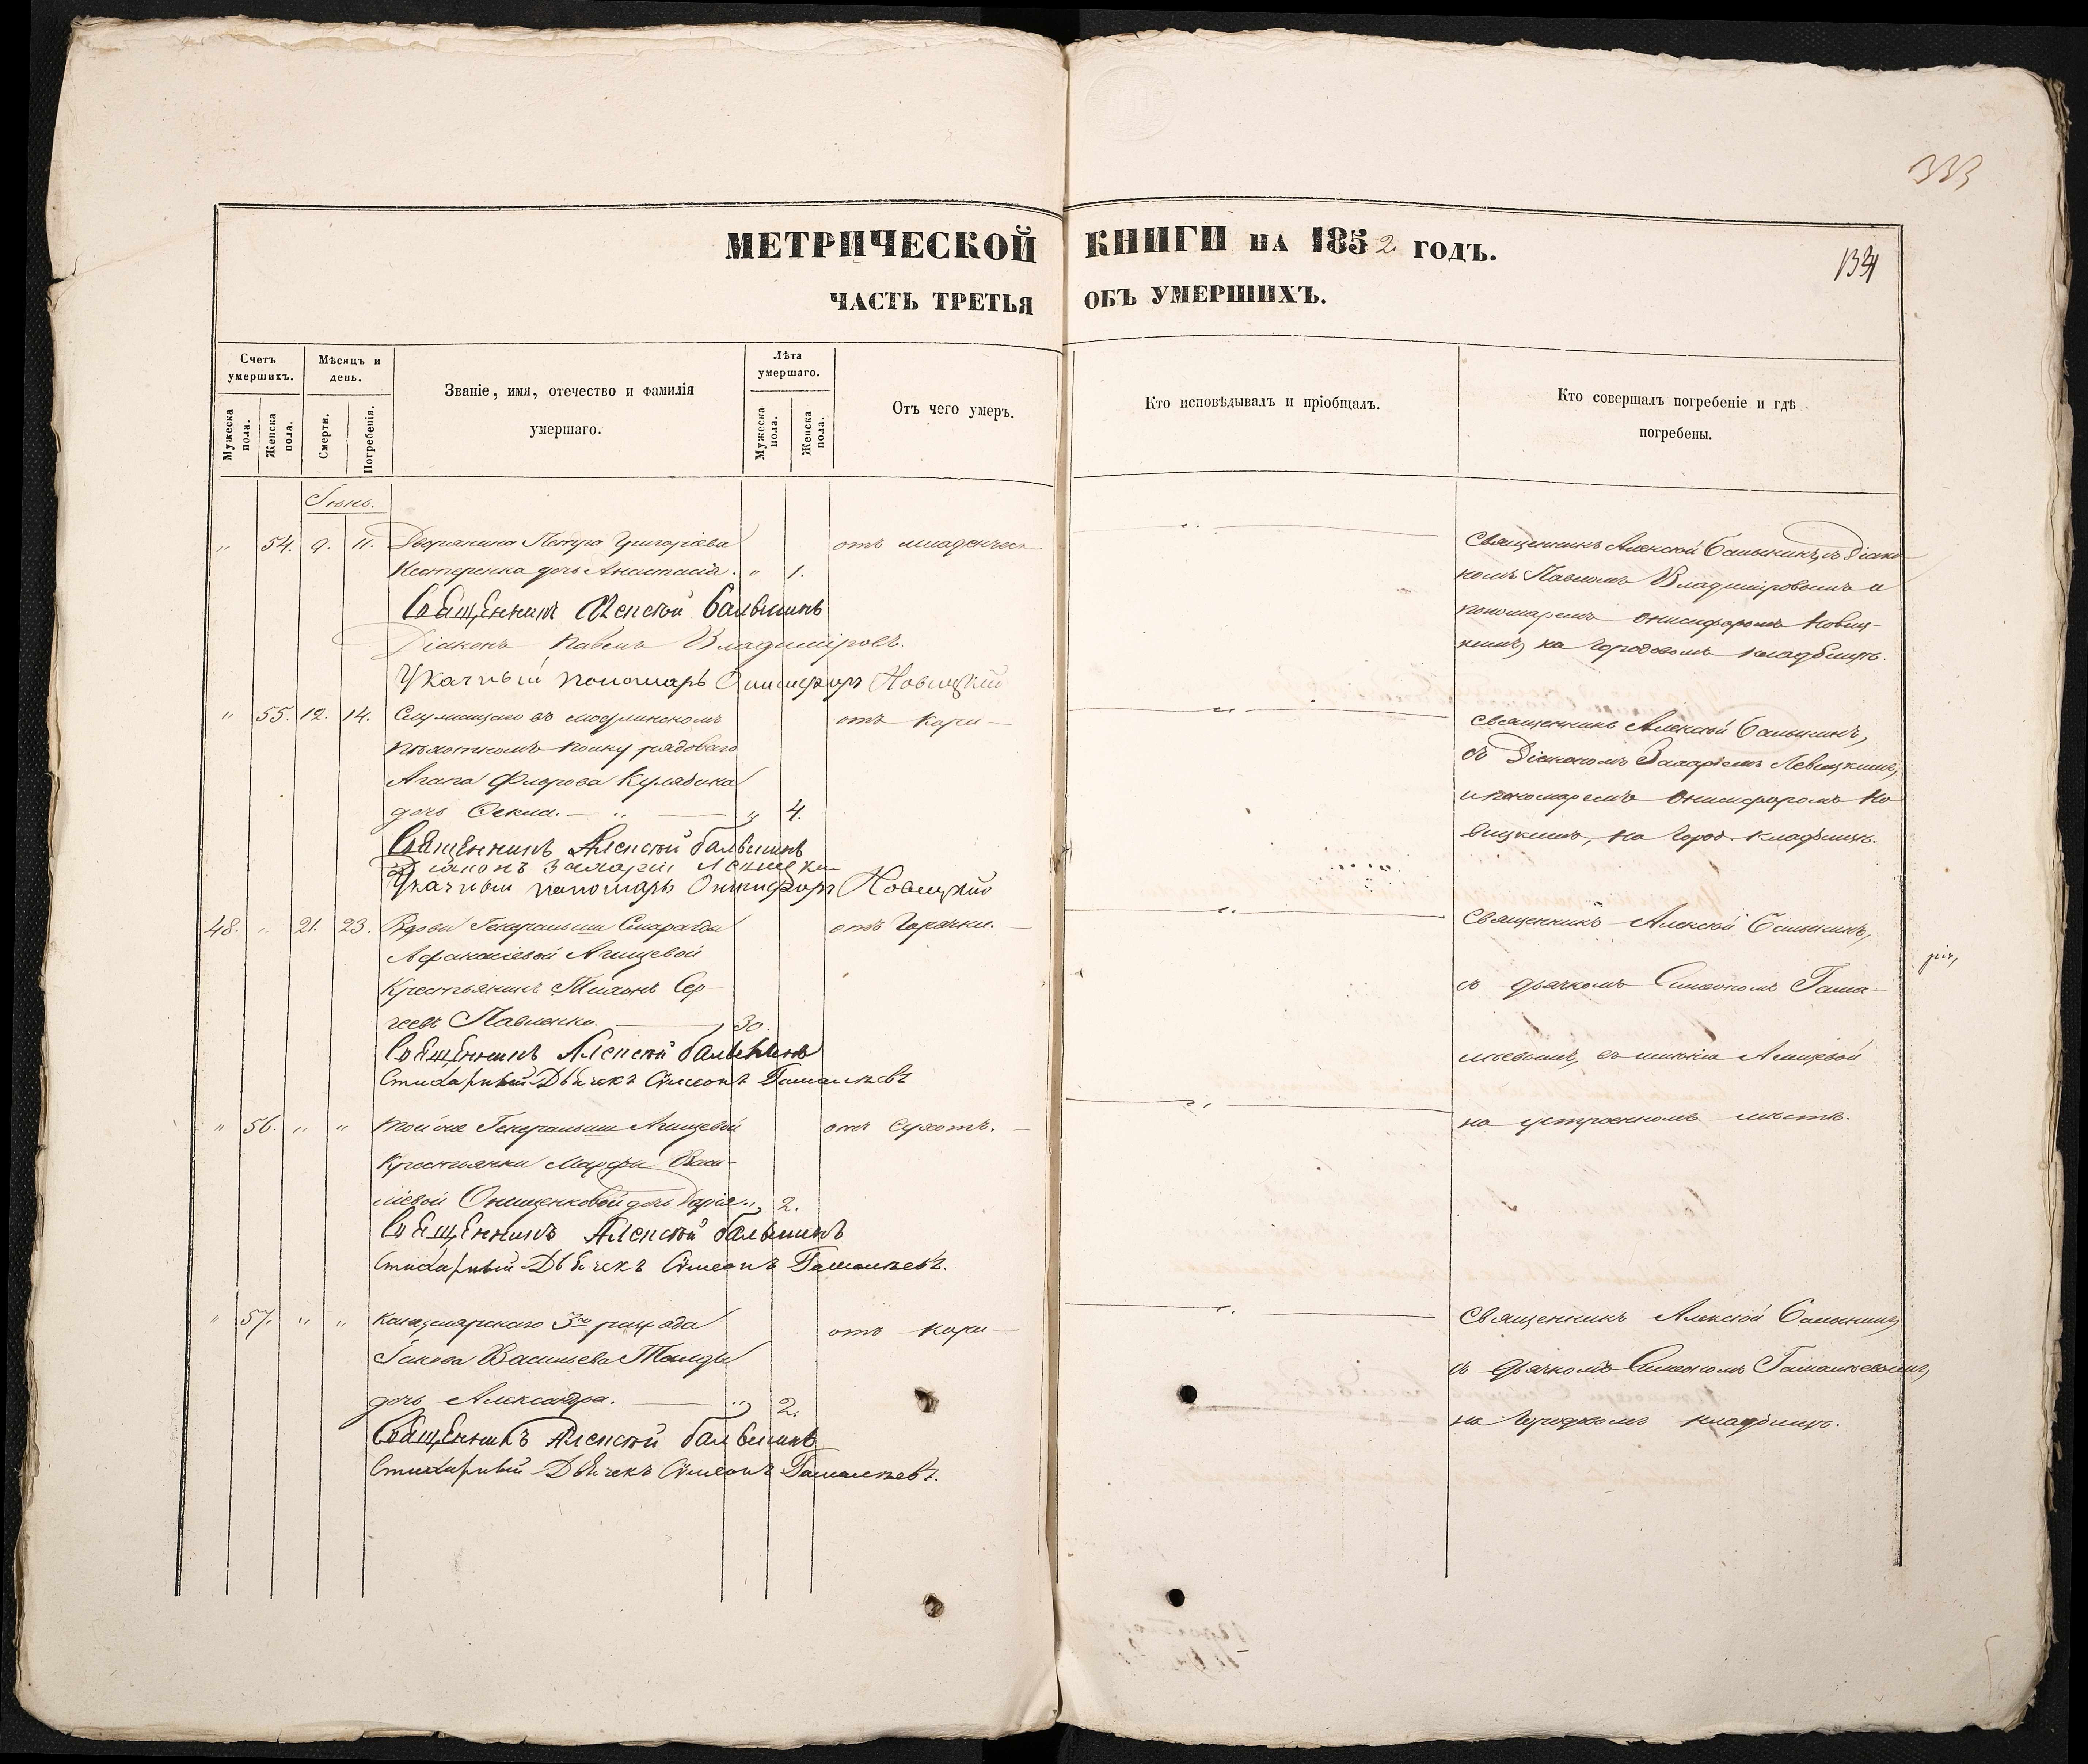 333
МЕТРИЧЕСКОЙ КНИГИ НА 1852 ГОДЪ.
134
ЧАСТЬ ТРЕТЬЯ ОБЪ УМЕРШИХЪ.
Счетъ умершихъ.
Мужеска пола.
Женска пола.
Мѣсяцъ и день.
Смерти.
Погребенія.
Званіе, имя, отечество и фамилія
умершаго.
Лѣта умершаго.
Мужеска пола.
Женска пола.
Отъ чего умеръ.
Кто исповѣдывалъ и пріобщалъ.
Кто совершалъ погребеніе и гдѣ
погребены.
Іюнь.
" 54. 9. 11. Дворянина Петра Григоріева отъ младенчес
Нестеренка дочь Анастасія. " 1.
Священникъ Алексѣй
Діаконъ Павелъ Владиміровъ.
Указный пономарь Онисифоръ Новицкій
Священникъ Алексѣй съ Діако
номъ Павломъ Владиміровымъ и
пономаремъ Онисифоромъ Новиц-
кимъ, на Городовомъ кладбищѣ.
" 55. 12. 14. Служащаго въ Модлинскомъ отъ кори
пѣхотномъ полку рядоваго
Агапа Флорова
дочь Ѳекла. " 4.
Священникъ Алексѣй
Діаконъ Захарій
Указный пономарь Онисифоръ Новицкій
Священникъ Алексѣй
съ Діакономъ Захаріемъ Левицкимъ,
и пономаремъ Онисифоромъ Но
вицкимъ, на Город. кладбищѣ.
48. " 21. 23. Вдовы Генеральши Смарагды отъ Горячки.
Афанасіевой
Крестьянинъ Тихонъ Сер-
геевъ Павленко. 30.
Священникъ Алексѣй
Стихарный Дьячекъ Симеонъ Гамалѣевъ
Священникъ Алексѣй
съ дьячкомъ Симеономъ Гама-
лѣевымъ, въ имѣніи
на устроенномъ мѣстѣ.
" 56. " " Той же Генеральши отъ Сухотъ.
Крестьянки Марфы Васи-
ліевой Онищенковой дочь Дарія. " 2.
Священникъ Алексѣй
Стихарный Дьячекъ Симеонъ Гамалѣевъ.
" 57. " " Канцелярскаго 3го разряда отъ кори
Іакова Васильева
дочь Александра. " 2.
Священникъ Алексѣй
Стихарный Дьячекъ Симеонъ Гамалѣевъ.
Священникъ Алексѣй
съ дьячкомъ Симеономъ Гамалѣевымъ,
на Городскомъ кладбищѣ.